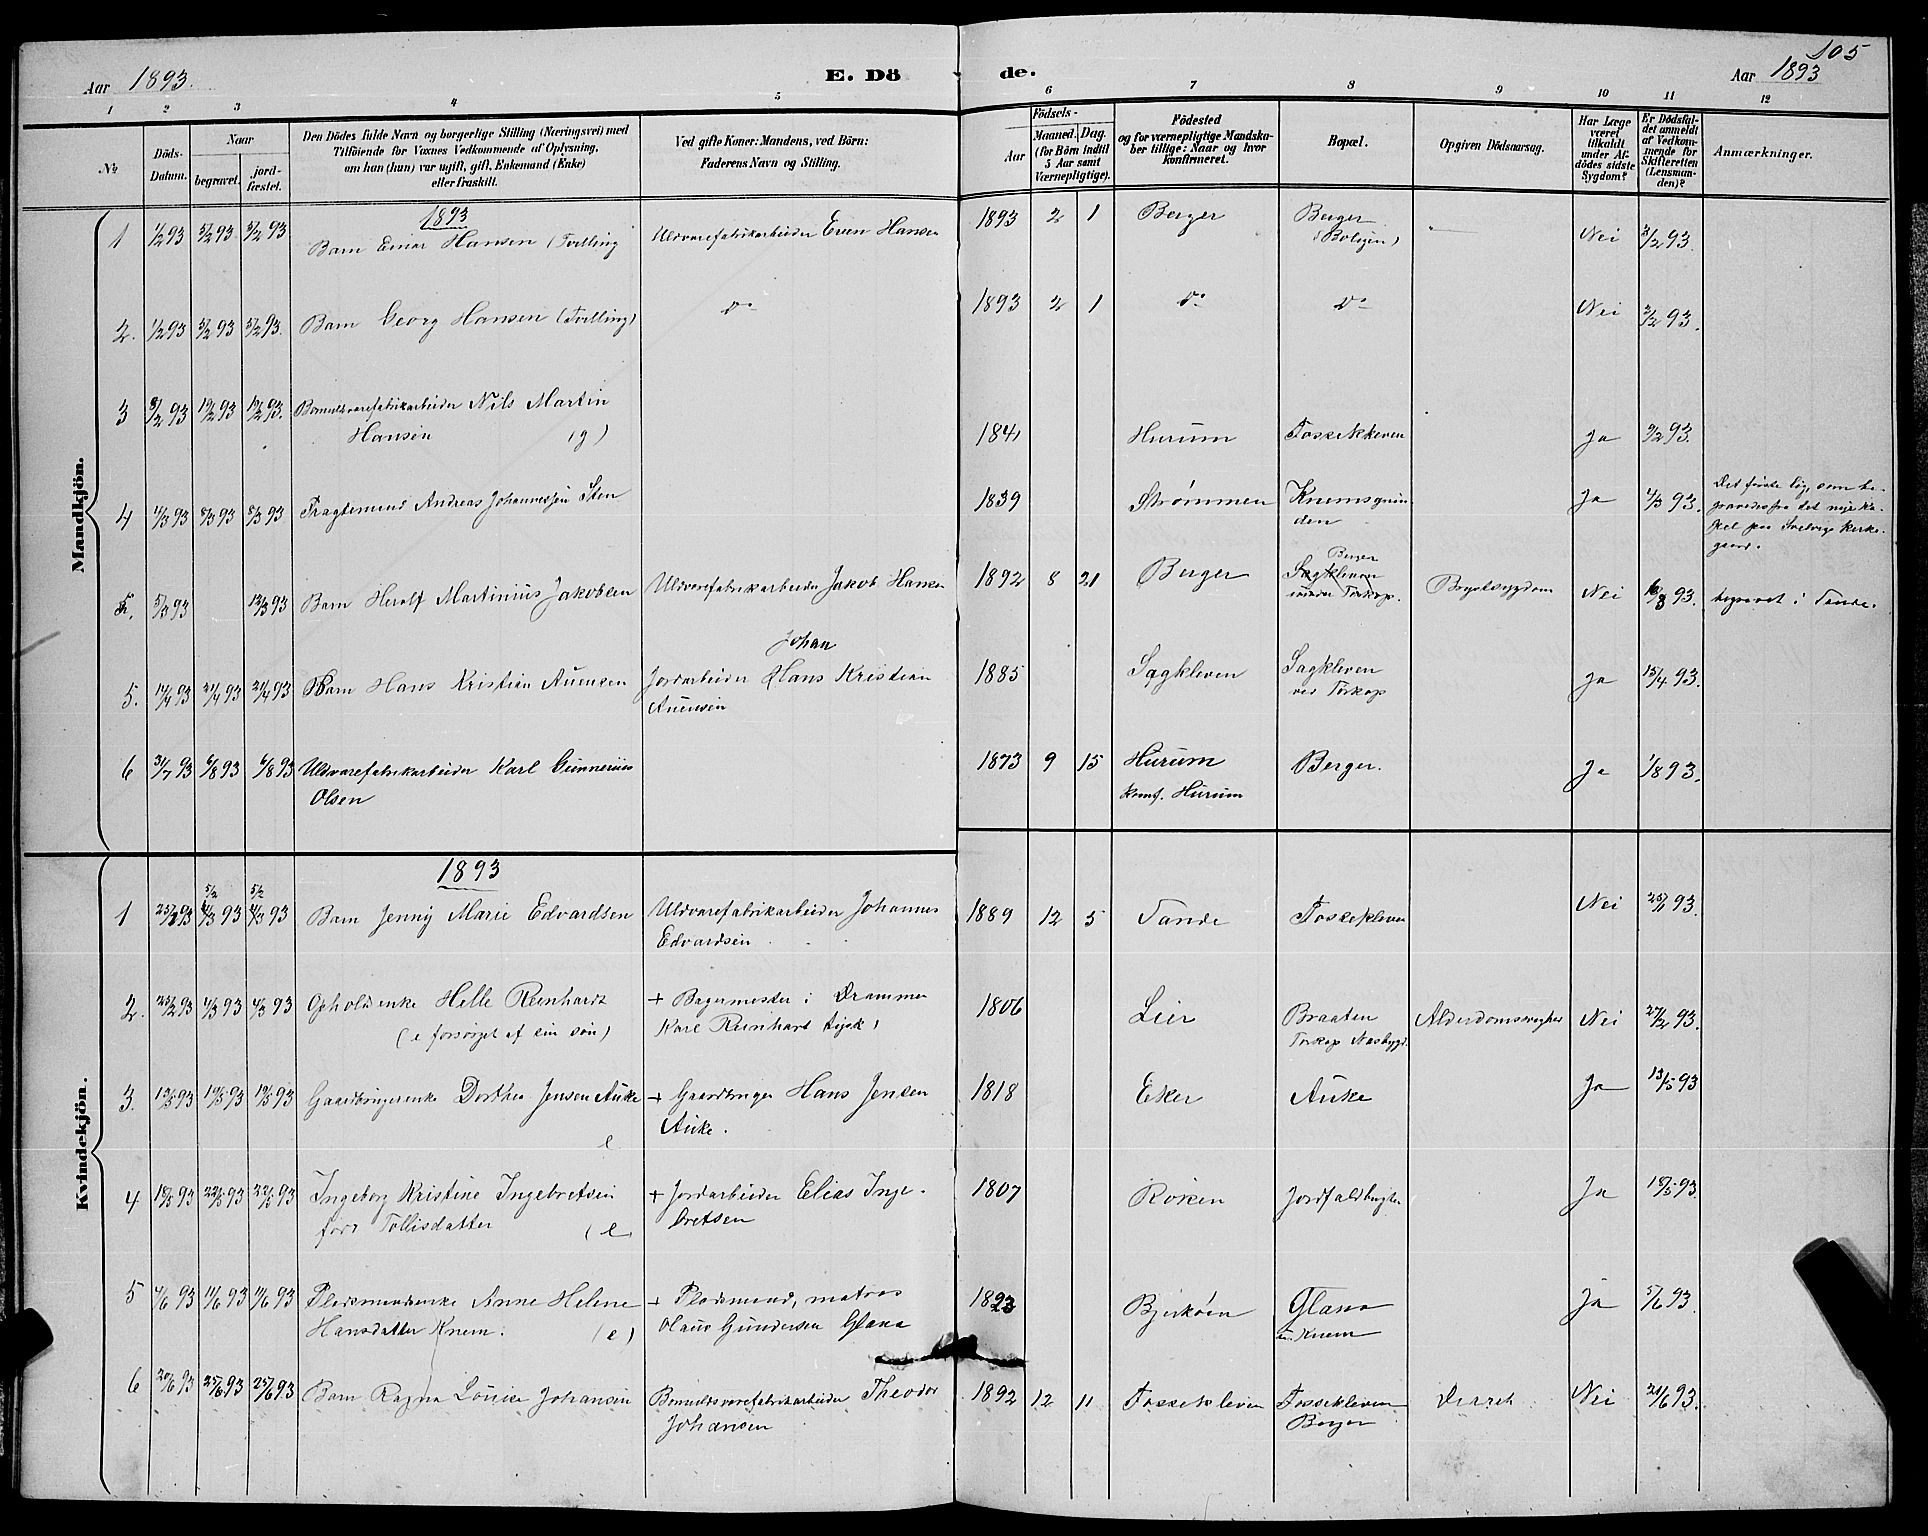 Aar 1893. E. Dö de. Aar 1893 105
1 2 3 4 5 6 7 8 9 10 11 12
№ Döds-Datum. Naar begravet. jord-fæstet.
Den Dödes fulde Navn og borgerlige Stilling (Næringsvei) med
Tilföiende for Voxnes Vedkommende af Oplysning,
om han (hun) var ugift, gift, Enkemand (Enke)
eller fraskilt.
Ved gifte Koner: Mandens, ved Börn:
Faderens Navn og Stilling.
Födsels-
Aar Maaned. Dag.
(for Börn indtil
5 Aar samt
Værnepligtige).
Födested
og for værnepligtige Mandska-
ber tillige: Naar og hvor
konfirmeret.
Bopæl.
Opgiven Dödsaarsag.
Har Læge
været
tilkaldt
under Af-
dödes sidste
Sygdom?
Er Dödsfal-
det anmeldt
af Vedkom-
mende for
Skifteretten
(Lensman-
den)?
Anmærkninger.
Mandkjön.
1893
1 1/2 93 5/2 93 5/2 93 Barn Einar Hansen (Tvilling Uldvarefabrikarbeider Even Hansen 1893 2 1 Berger Berger Nei 3/2 93.
(Boligen)
2. 1/2 93 5/2 93 5/2 93. Barn Georg Hansen (Tvilling) Do 1893 2 1 Do Do Nei 3/2 93.
3 8/2 93 19/2 93 19/2 93. Bomuldsvarefabrikarbeider Nils Martin
Hansen (g) 1841 Hurum Fossekleven Ja 9/2 93.
4 1/3 93 8/3 93 8/3 93 Fragtemand Andreas Johannessen Sten 1839 Strømmen Knemsgrun-
den Ja 4/3 93. Det første lig, som be-
gravedes fra det nye ka-
pel paa Svelvigs kirke-
gaard.
5/3 93 12/3 93 Barn Herolf Martinius Jakobsen Uldvarefabrikarbeider Jakob Hansen 1892 8 21 Berger Berger
Sagkleven
under Torkop. Brystsygdom Nei 6/3 93. begravet i Sande.
5. 14/4 93 21/4 93 21/4 93 Barn Hans Kristian Auensen Jordarbeider Johan Hans Kristian
Auensen 1885 Sagkleven Sagkleven
ved Torkop Ja 15/4 93.
6 31/7 93 6/8 93 6/8 93 Uldvarefabrikarbeider Karl Gunnerius
Olsen 1873 9 15 Hurum Berger. Ja 1/8 93.
konf. Hurum
Kvindekjön.
1893
5/2 5/2
1 25/1 93 4/3 93 4/3 93 Barn Jenny Marie Edvardsen Uldvarefabrikarbeider Johannes
Edvardsen 1889 12 5 Sande Fossekleven Nei 25/1 93.
2. 25/2 93 4/3 93 4/3 93 Opholdsenke Helle Reinhardt + Bagermester i Drammen 1806 Lier Braaten Alderdomssvaghed Nei 27/2 93.
(e forsørget af sin søn) Karl Reinhart Torkop Nesbygd.
3. 12/5 93 19/5 93 19/5 93 Gaardbrugerenke Dorthea Jensen Auke + Gaardbruger Hans Jensen 1818 Eker Auke Ja 13/5 93
e Auke.
4 18/5 93 22/5 93 22/5 93 Ingeborg Kristine Ingebretsen + Jordarbeider Elias Inge- 1807 Röken Jordfaldbugten Ja 18/5 93.
född Tollisdatter (e) bretsen
5 4/6 93 11/6 93 11/6 93 Pladsmandsenke Anne Helene + Pladsmand, matros 1823 Bjerköen Glana Ja 5/6 93.
Hansdatter Knem. (e) Olaus Gundersen Glana u. Knem
6 20/6 93 25/6 93 25/6 93 Barn Ragna Lovise Johansen Bomuldsvarefabrikarbeider Theodor 1892 12 11 Fossekleven Fossekleven Nei 21/6 93.
Johansen Berger